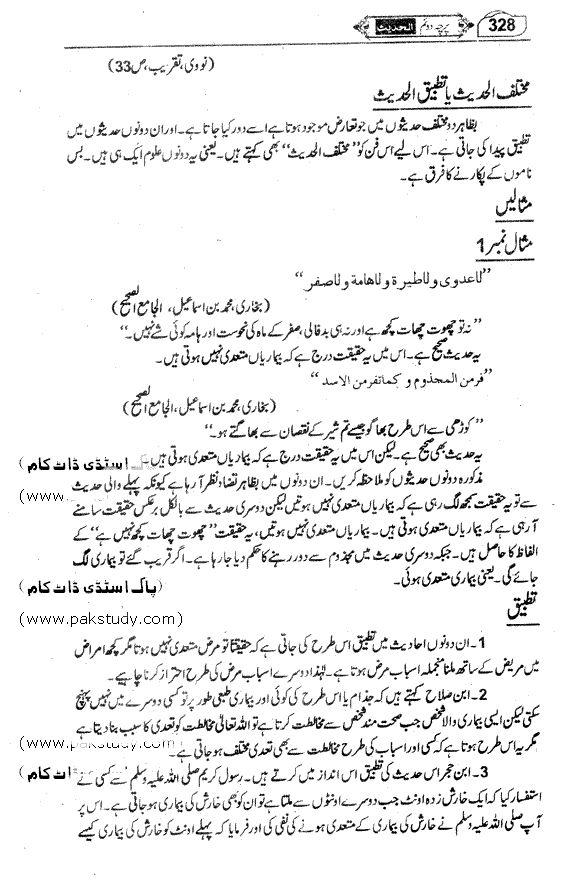 328 الحدیث پرچہ دوئم
(نووی، تقریب، ص33)
مختلف الحدیث یا تطبیق الحدیث
بظاہر دو مختلف حدیثوں میں جو تعارض موجود ہوتا ہے اسے دور کیا جاتا ہے۔ اور ان دونوں حدیثوں میں
تطبیق پیدا کی جاتی ہے۔ اس لیے اس فن کو ”مختلف الحدیث“ بھی کہتے ہیں۔ یعنی یہ دونوں علوم ایک ہی ہیں۔ بس
ناموں کے پکارنے کا فرق ہے۔
مثالیں
مثال نمبر 1
”لاعدوی ولاطیرة ولاهامة ولاصفر“
(بخاری، محمد بن اسماعیل، الجامع الصحیح)
”نہ تو چھوت چھات کچھ ہے اور نہ ہی بدفالی، صفر کے ماہ کی نحوست اور ہامہ کوئی شے نہیں۔“
یہ حدیث صحیح ہے۔ اس میں یہ حقیقت درج ہے کہ بیماریاں متعدی نہیں ہوتی ہیں۔
”فرمن المجذوم و كماتفرمن الاسد“
(بخاری، محمد بن اسماعیل، الجامع الصحیح)
”کوڑھی سے اس طرح بھاگو جیسے تم شیر کے نقصان سے بھاگتے ہو۔“
یہ حدیث بھی صحیح ہے۔ لیکن اس میں یہ حقیقت درج ہے کہ بیماریاں متعدی ہوتی ہیں۔
اسٹڈی ڈاٹ کام)
مذکورہ دونوں حدیثوں کو ملاحظہ کریں۔ ان دونوں میں بظاہر تضاد نظر آ رہا ہے کیونکہ پہلے والی حدیث
(www.
سے تو یہ حقیقت سمجھ لگ رہی ہے کہ بیماریاں متعدی نہیں ہوتیں لیکن دوسری حدیث سے بالکل برعکس حقیقت سامنے
آ رہی ہے کہ بیماریاں متعدی ہوتی ہیں۔ بیماریاں متعدی نہیں ہوتیں، یہ حقیقت ”چھوت چھات کچھ نہیں ہے“ کے
الفاظ کا حاصل ہیں۔ جبکہ دوسری حدیث میں مجذوم سے دور رہنے کا حکم دیا جا رہا ہے۔ اگر قریب گئے تو بیماری لگ
جائے گی۔ یعنی بیماری متعدی ہوئی۔
(پاک اسٹڈی ڈاٹ کام)
تطبیق
(www.pakstudy.com)
1۔ ان دونوں احادیث میں تطبیق اس طرح کی جاتی ہے کہ حقیقتاً تو مرض متعدی نہیں ہوتا مگر کچھ امراض
میں مریض کے ساتھ ملنا منجملہ اسباب مرض ہوتا ہے۔ لہٰذا دوسرے اسباب مرض کی طرح احتراز کرنا چاہیے۔
2۔ ابن صلاح کہتے ہیں کہ جذام یا اس طرح کی کوئی اور بیماری طبعی طور پر تو کسی دوسرے میں نہیں پہنچ
سکتی لیکن ایسی بیماری والا شخص جب صحت مند شخص سے مخالطت کرتا ہے تو اللہ تعالیٰ مخالطت کو تعدی کا سبب بنا دیتا ہے
مگر یہ اس طرح ہوتا ہے کہ کسی اور اسباب کی طرح مخالطت سے بھی تعدی مختلف ہو جاتی ہے۔
(www.pakstudy.com)
3۔ ابن حجر اس حدیث کی تطبیق اس انداز میں کرتے ہیں۔ رسول کریم صلی اللہ علیہ وسلم سے کسی نے
ڈاٹ کام)
استفسار کیا کہ ایک خارش زدہ اونٹ جب دوسرے اونٹوں سے ملتا ہے تو ان کو بھی خارش کی بیماری ہو جاتی ہے۔ اس پر
آپ صلی اللہ علیہ وسلم نے خارش کی بیماری کے متعدی ہونے کی نفی کی اور فرمایا کہ پہلے اونٹ کو خارش کی بیماری کیسے